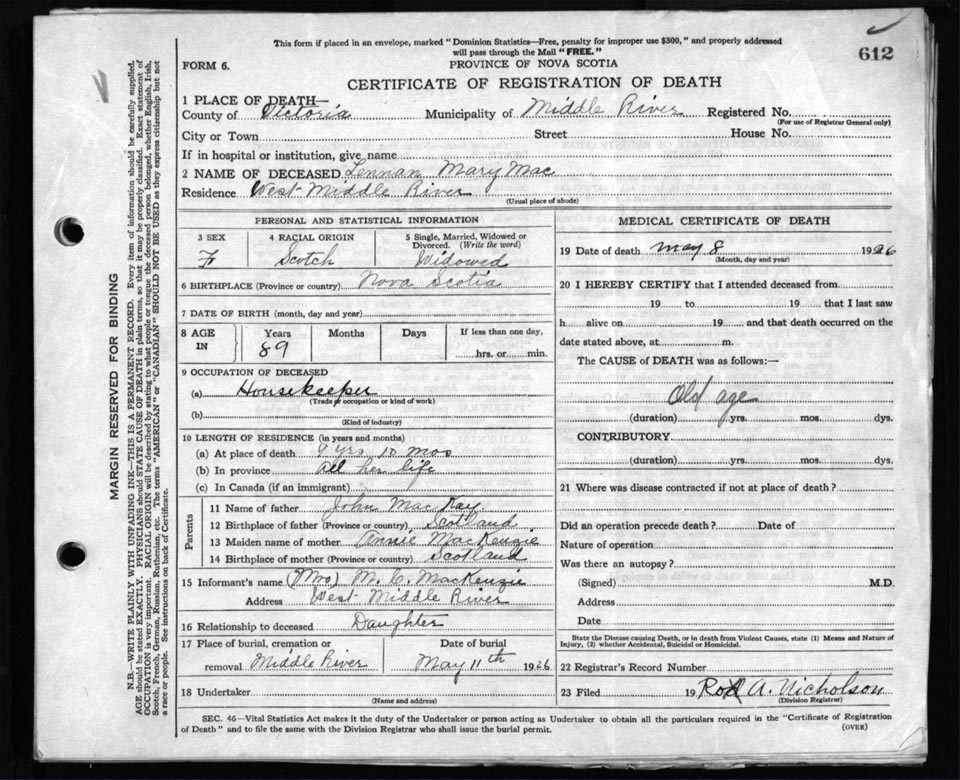 This form if placed in an envelope, marked "Dominion Statistics—Free, penalty for improper use $300," and properly addressed
will pass through the Mail "FREE."
612
FORM 6.
PROVINCE OF NOVA SCOTIA
CERTIFICATE OF REGISTRATION OF DEATH
1 PLACE OF DEATH—
County of Victoria Municipality of Middle River Registered No.
(For use of Registrar General only)
City or Town Street House No.
If in hospital or institution, give name
2 NAME OF DECEASED Lennan Mary Mac
Residence West Middle River
(Usual place of abode)
PERSONAL AND STATISTICAL INFORMATION
3 SEX 4 RACIAL ORIGIN 5 Single, Married, Widowed or Divorced. (Write the word)
F Scotch Widowed
6 BIRTHPLACE (Province or country) Nova Scotia
7 DATE OF BIRTH (month, day and year)
8 AGE IN Years Months Days If less than one day,
89 hrs. or min.
9 OCCUPATION OF DECEASED
(a) Housekeeper
(Trade or occupation or kind of work)
(b)
(Kind of industry)
10 LENGTH OF RESIDENCE (in years and months)
(a) At place of death 9 yrs 10 mos
(b) In province all her life
(c) In Canada (if an immigrant)
Parents
11 Name of father John MacKay
12 Birthplace of father (Province or country) Scotland
13 Maiden name of mother Annie MacKenzie
14 Birthplace of mother (Province or country) Scotland
15 Informant's name (Mrs) M. C. MacKenzie
Address West Middle River
16 Relationship to deceased Daughter
17 Place of burial, cremation or Date of burial
removal Middle River May 11th 1926
18 Undertaker
(Name and address)
MEDICAL CERTIFICATE OF DEATH
19 Date of death May 8 1926
(Month, day and year)
20 I HEREBY CERTIFY that I attended deceased from
19 to 19 that I last saw
h alive on 19 and that death occurred on the
date stated above, at m.
The CAUSE of DEATH was as follows:—
Old age
(duration) yrs. mos. dys.
CONTRIBUTORY
(duration) yrs. mos. dys.
21 Where was disease contracted if not at place of death?
Did an operation precede death? Date of
Nature of operation
Was there an autopsy?
(Signed) M.D.
Address
Date
State the Disease causing Death, or in death from Violent Causes, state (1) Means and Nature of
Injury, (2) whether Accidental, Suicidal or Homicidal.
22 Registrar's Record Number
23 Filed 19 Rod A. Nicholson
(Division Registrar)
SEC. 46—Vital Statistics Act makes it the duty of the Undertaker or person acting as Undertaker to obtain all the particulars required in the "Certificate of Registration
of Death" and to file the same with the Division Registrar who shall issue the burial permit.
(OVER)
MARGIN RESERVED FOR BINDING
N.B.—WRITE PLAINLY WITH UNFADING INK—THIS IS A PERMANENT RECORD. Every item of information should be carefully supplied.
AGE should be stated EXACTLY. PHYSICIANS should STATE CAUSE OF DEATH in plain terms, so that it may be properly classified. Exact statement of
OCCUPATION is very important. RACIAL ORIGIN will be described by stating to what people or tongue the deceased person belonged, whether English, Irish,
Scotch, French, German, Russian, Ruthenian, etc. The terms "AMERICAN" or "CANADIAN" SHOULD NOT BE USED as they express citizenship but not
a race or people. See instructions on back of Certificate.